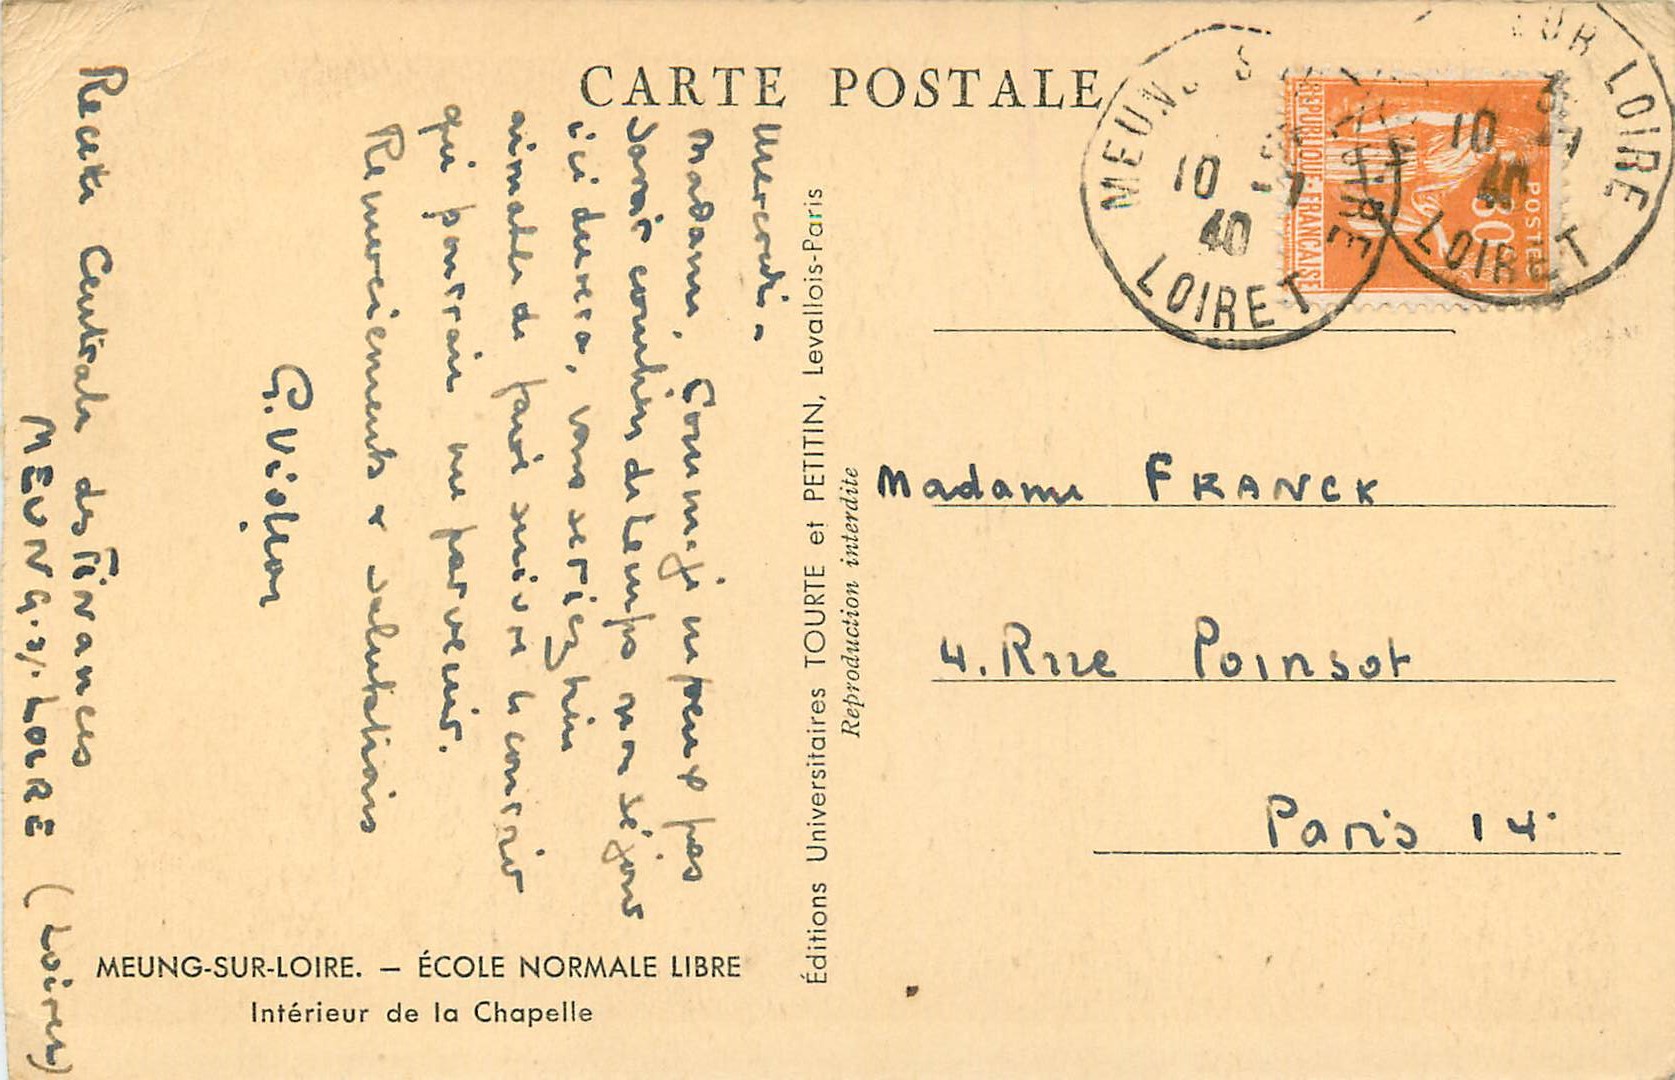 CARTE POSTALE
Mercredi.
Madame, Comme je ne peux pas
savoir combien de temps mon séjour
ici durera, vous seriez bien
aimable de faire suivre le courrier
qui pourrait me parvenir.
Remerciements & salutations
G. Viollon
Recette Centrale des Finances
MEUNG. s/. LOIRE (Loiret)
MEUNG-SUR-LOIRE. — ÉCOLE NORMALE LIBRE
Intérieur de la Chapelle
Éditions Universitaires TOURTE et PETITIN, Levallois-Paris
Reproduction interdite
MEUNG S LOIRE
10 -7
40
LOIRET
SUR LOIRE
10 -7
40
LOIRET
REPUBLIQUE·FRANÇAISE
POSTES
80
Madame FRANCK
4. Rue Poinsot
Paris 14.